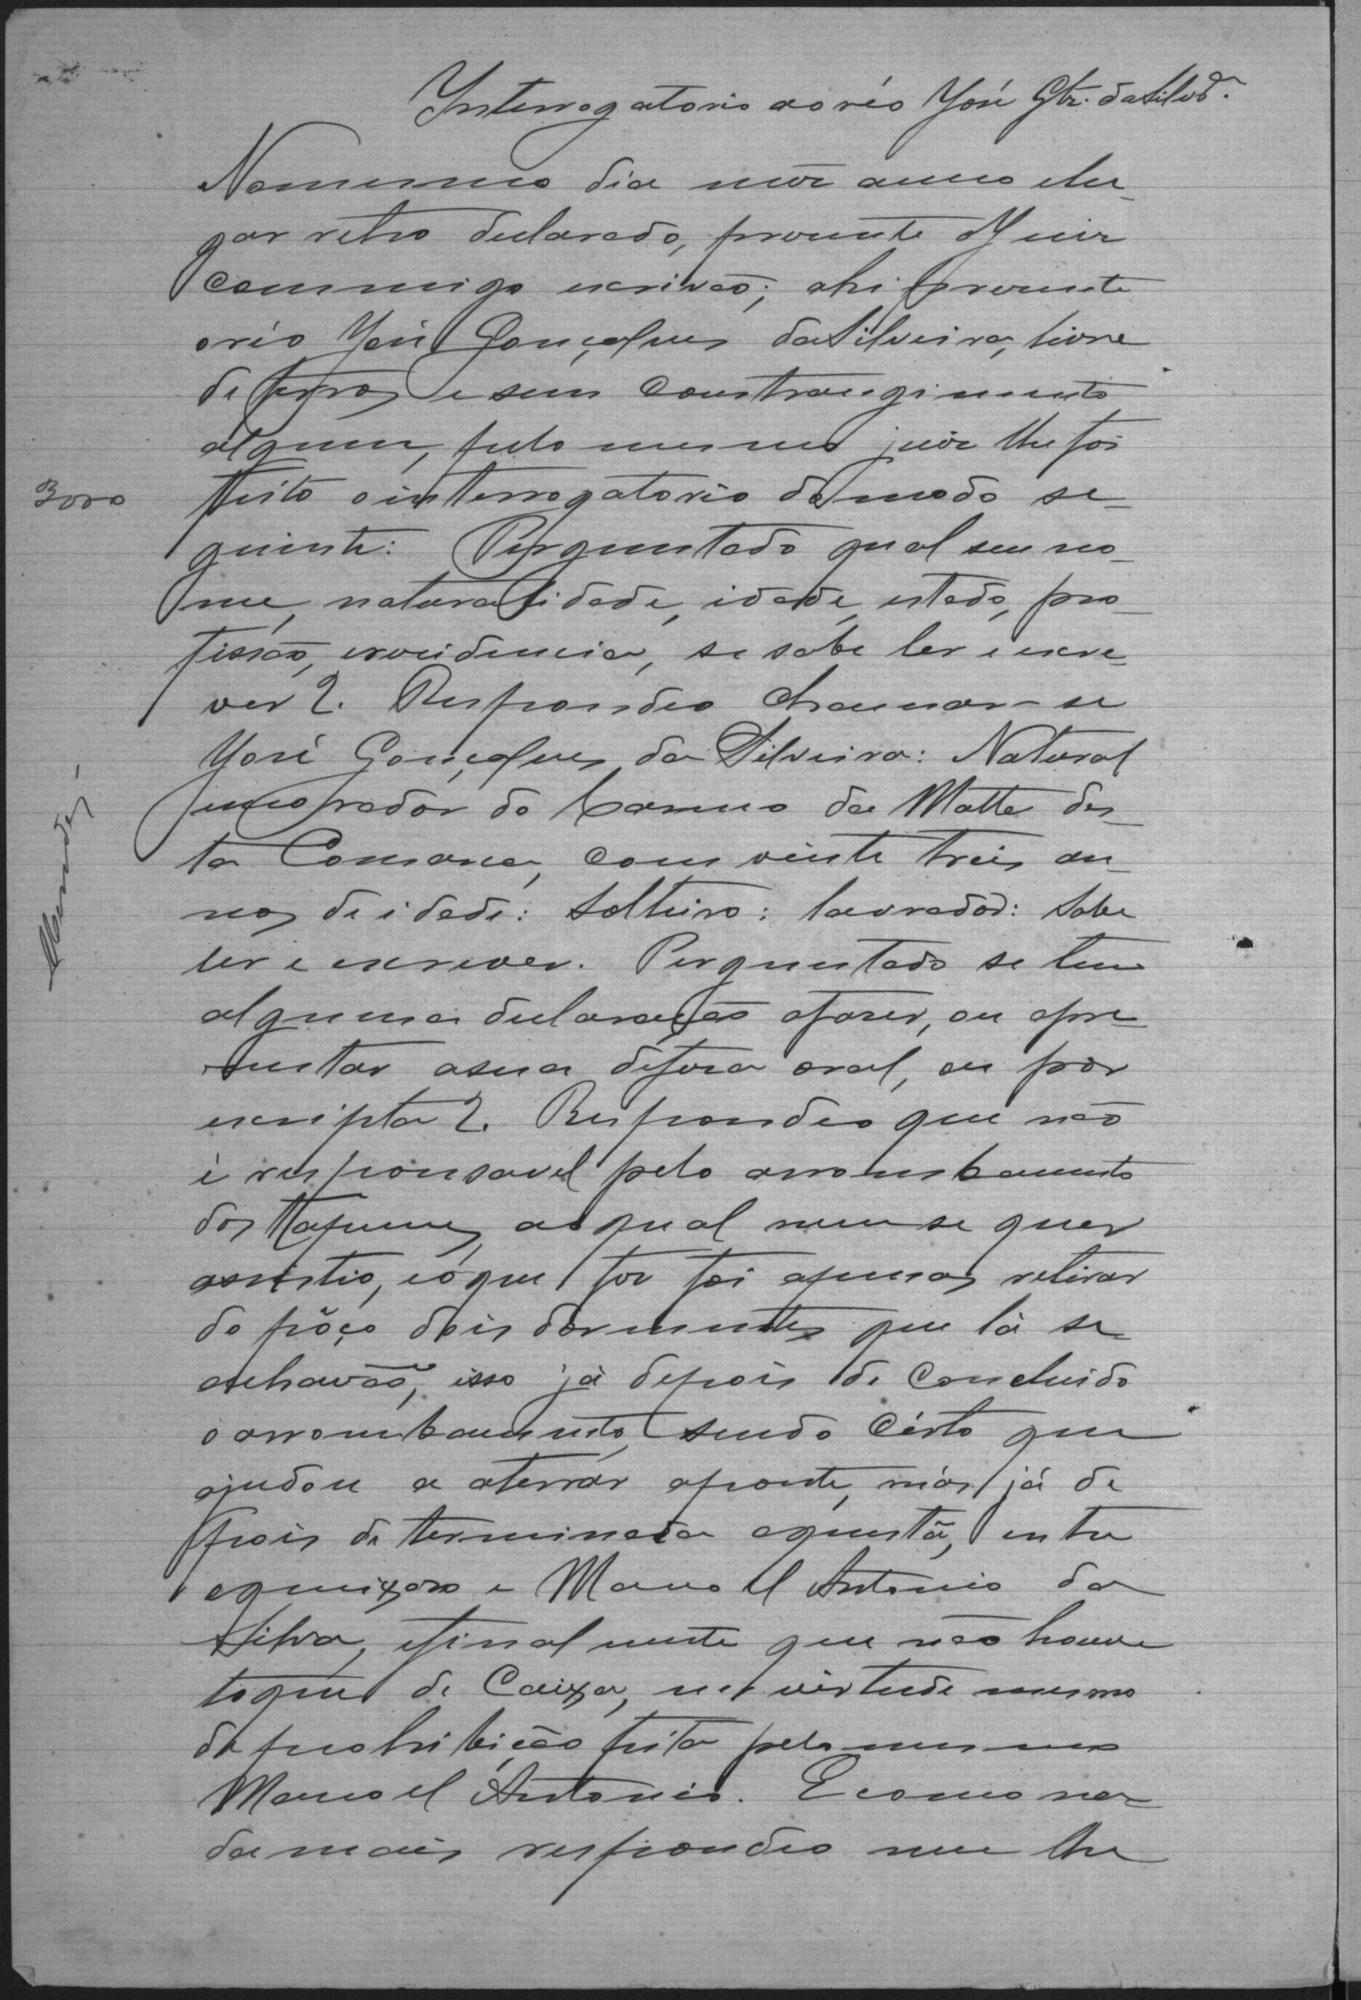 Interrogatorio ao réo José Glz. da Silvrª.
No mesmo dia mez anno e lu-
gar retro declarado, presente o Juiz
commigo escrivão; ahi presente
o réo José Gonçalves da Silveira, livre
de ferros e sem constrangimento
algum, pelo mesmo juiz lhe foi
3000 feito o interrogatorio do modo se-
guinte: Perguntado qual seu no-
me, naturalidade, idade, estado, pro-
fissão, e residencia, se sabe ler e escre-
ver? Respondeo chamar-se
José Gonçalves da Silveira: Natural
e morador do Carmo da Matta des-
ta Comarca, com vinte treis an-
nos de idade: solteiro: lavrador: sabe
ler e escrever. Perguntado se tem
alguma declaração a fazer, ou apre-
sentar a sua defeza oral, ou por
escripta? Respondeo que não
é responsavel pelo arrombamento
dos tapumes, ao qual nem se quer
assistio, e o que fez foi apenas retirar
do pôço dois dormentes que lá se
achavão, isso já depois de concluido
o arrombamento, sendo certo que
ajudou a aterrar a ponte, más já de
pois de terminada a questã, entre
a queixosa e Manoel Antonio da
Silva, e finalmente que não houve
toque de Caixa, em virtude mesmo
da prohibição feita pelo mesmo
Manoel Antonio. E como na-
da mais respondeo nem lhe
Mendes